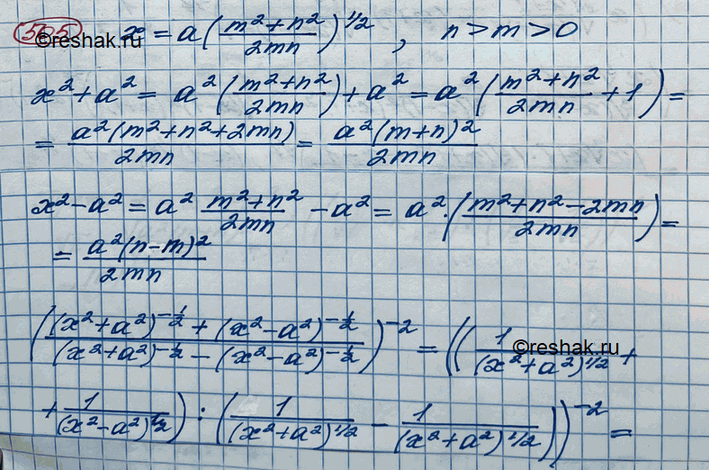 505 x = a((m²+n²)/(2mn))^(1/2), n > m > 0
©reshak.ru
x²+a² = a²((m²+n²)/(2mn))+a² = a²((m²+n²)/(2mn) + 1) =
= (a²(m²+n²+2mn))/(2mn) = (a²(m+n)²)/(2mn)
x²-a² = a² (m²+n²)/(2mn) - a² = a²·((m²+n²-2mn)/(2mn)) =
= (a²(n-m)²)/(2mn)
(((x²+a²)^(-1/2) + (x²-a²)^(-1/2))/((x²+a²)^(-1/2) - (x²-a²)^(-1/2)))^(-2) = ((1/(x²+a²)^(1/2) +
©reshak.ru
+ 1/(x²-a²)^(1/2)) : (1/(x²+a²)^(1/2) - 1/(x²+a²)^(1/2)))^(-2) =